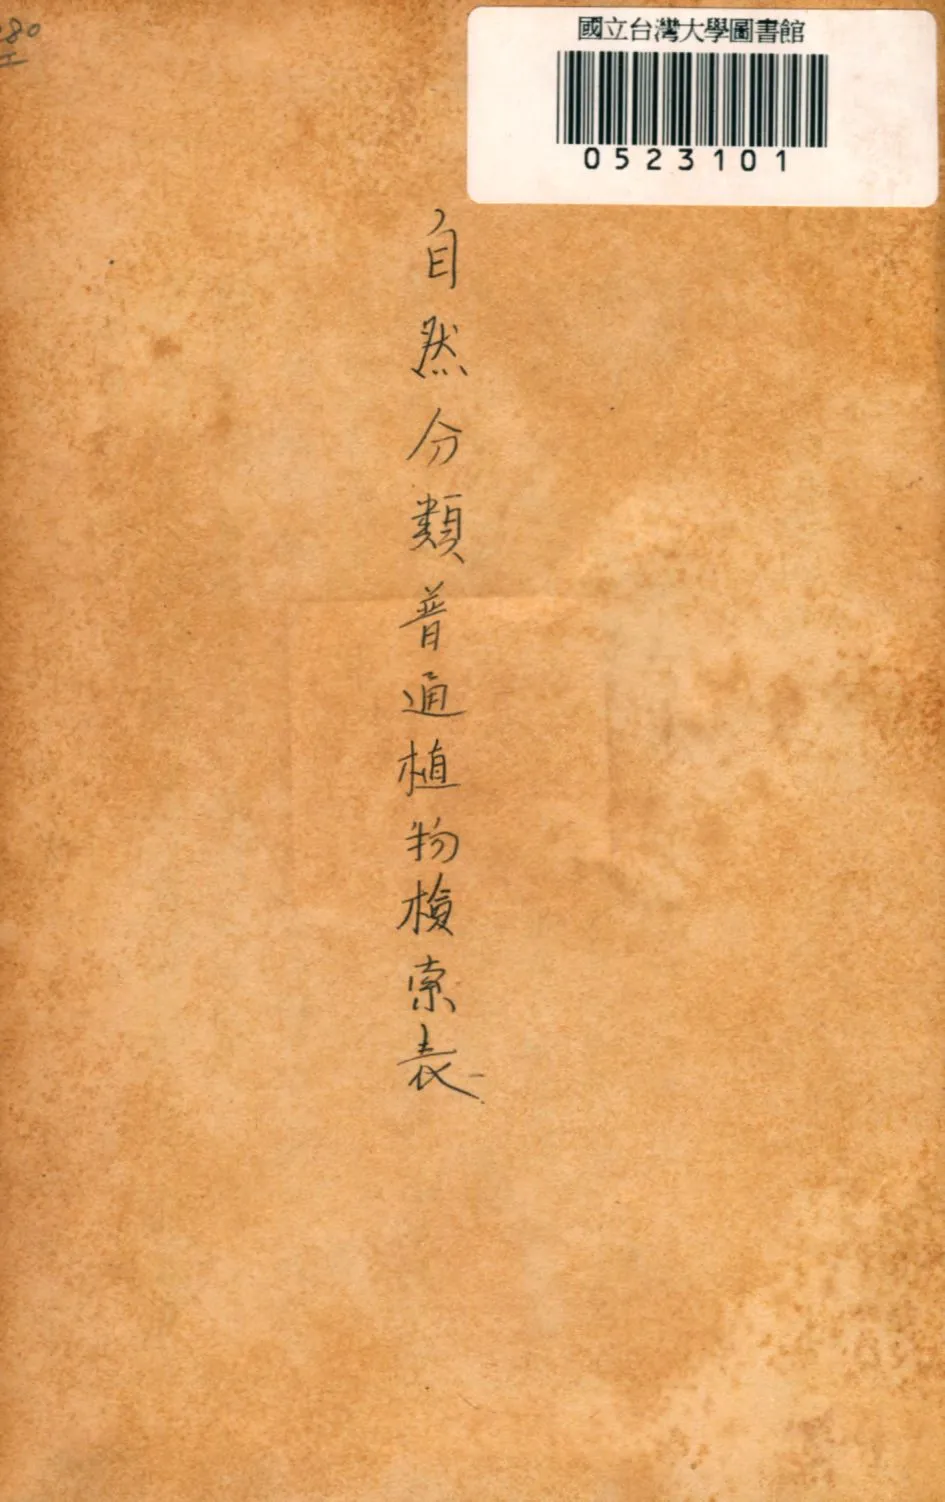 國立台灣大學圖書館
0523101
自然分類普通植物檢索表